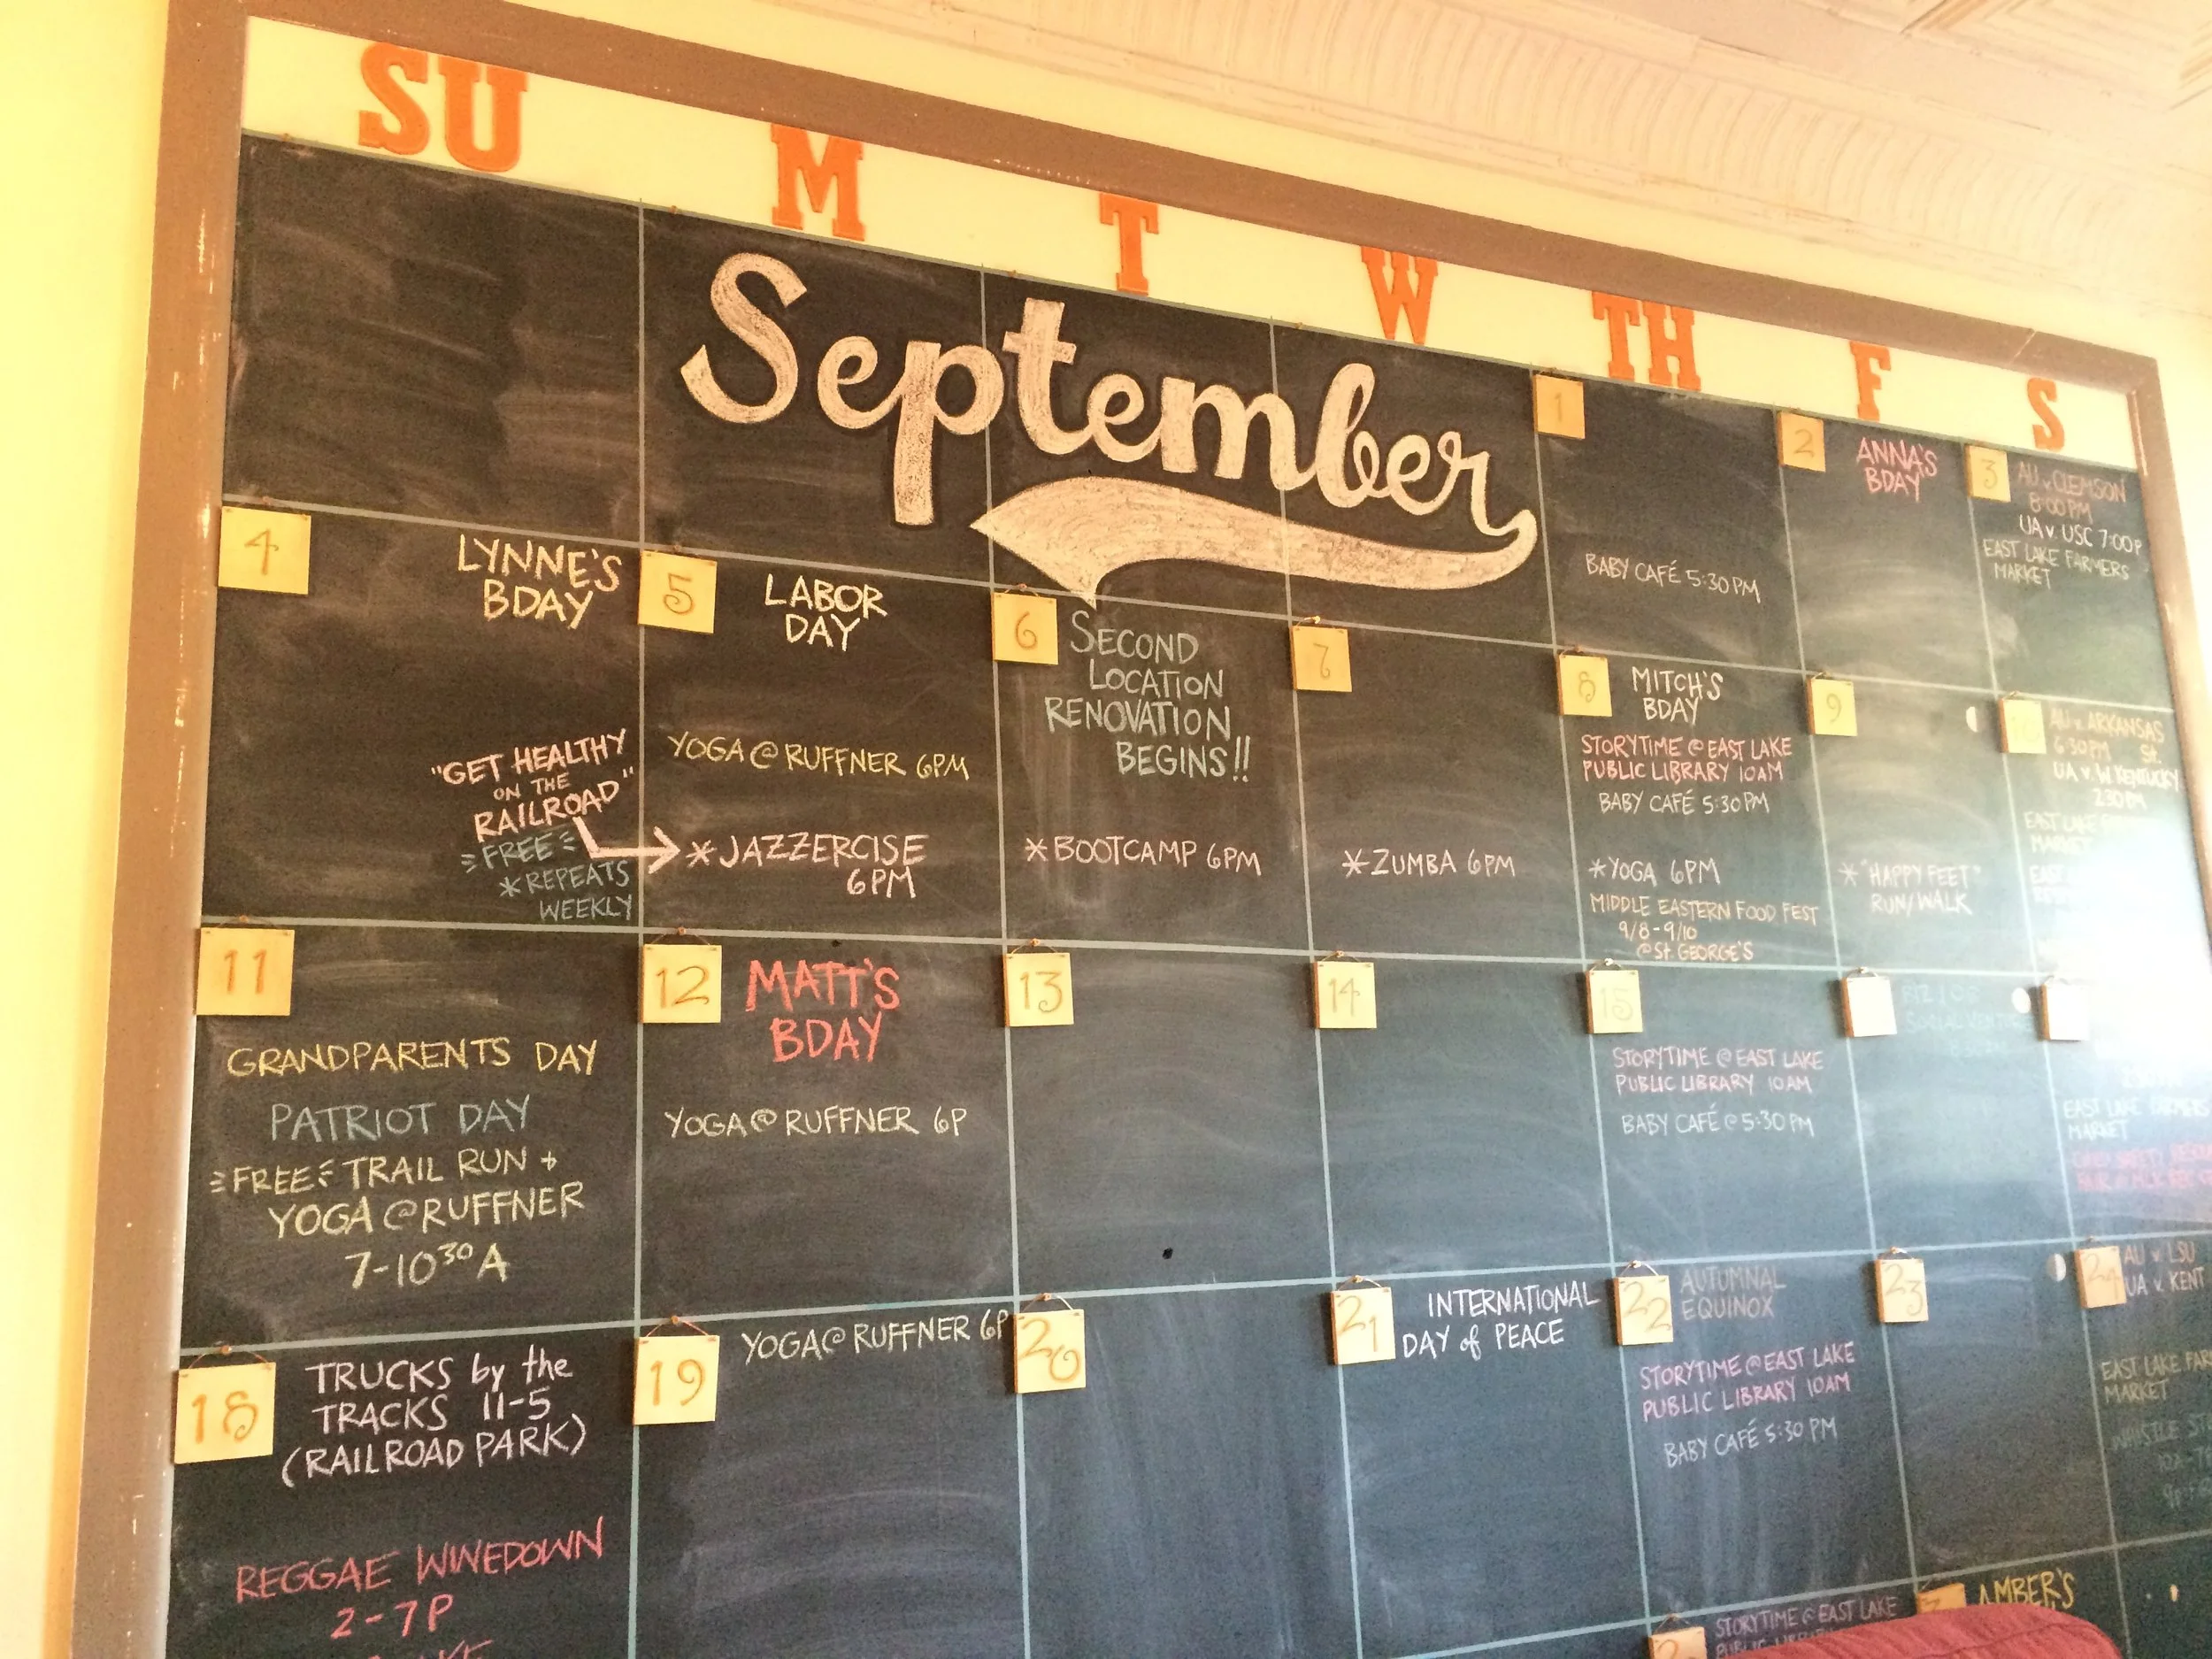 SU M T W TH F S
September
1
BABY CAFÉ 5:30 PM
2
ANNA'S
BDAY
3
AU v. CLEMSON
8:00 PM
UA v. USC 7:00P
EAST LAKE FARMERS
MARKET
4
LYNNE'S
BDAY
"GET HEALTHY
ON THE
RAILROAD"
FREE
*REPEATS
WEEKLY
5
LABOR
DAY
YOGA @ RUFFNER 6PM
*JAZZERCISE
6PM
6
SECOND
LOCATION
RENOVATION
BEGINS!!
*BOOTCAMP 6PM
7
*ZUMBA 6PM
8
MITCH'S
BDAY
STORYTIME @ EAST LAKE
PUBLIC LIBRARY 10AM
BABY CAFÉ 5:30 PM
*YOGA 6PM
MIDDLE EASTERN FOOD FEST
9/8-9/10
@ St. GEORGE'S
9
*"HAPPY FEET"
RUN/WALK
10
AU v. ARKANSAS
6:30PM St.
UA v. W KENTUCKY
2:30 PM
EAST LAKE
MARKET
EAST
11
GRANDPARENTS DAY
PATRIOT DAY
FREE TRAIL RUN +
YOGA @ RUFFNER
7-10³⁰A
12
MATT'S
BDAY
YOGA @ RUFFNER 6P
13
14
15
STORYTIME @ EAST LAKE
PUBLIC LIBRARY 10AM
BABY CAFÉ @ 5:30 PM
SOCIAL
EAST LAKE FARMERS
MARKET
18
TRUCKS by the
TRACKS 11-5
(RAILROAD PARK)
REGGAE WINEDOWN
2-7P
19
YOGA @ RUFFNER 6P
20
21
INTERNATIONAL
DAY of PEACE
22
AUTUMNAL
EQUINOX
STORYTIME @ EAST LAKE
PUBLIC LIBRARY 10AM
BABY CAFÉ 5:30 PM
23
24
AU v. LSU
UA v. KENT
EAST LAKE FAR
MARKET
WHISTLE
STORYTIME @ EAST LAKE
PUBLIC
AMBER'S